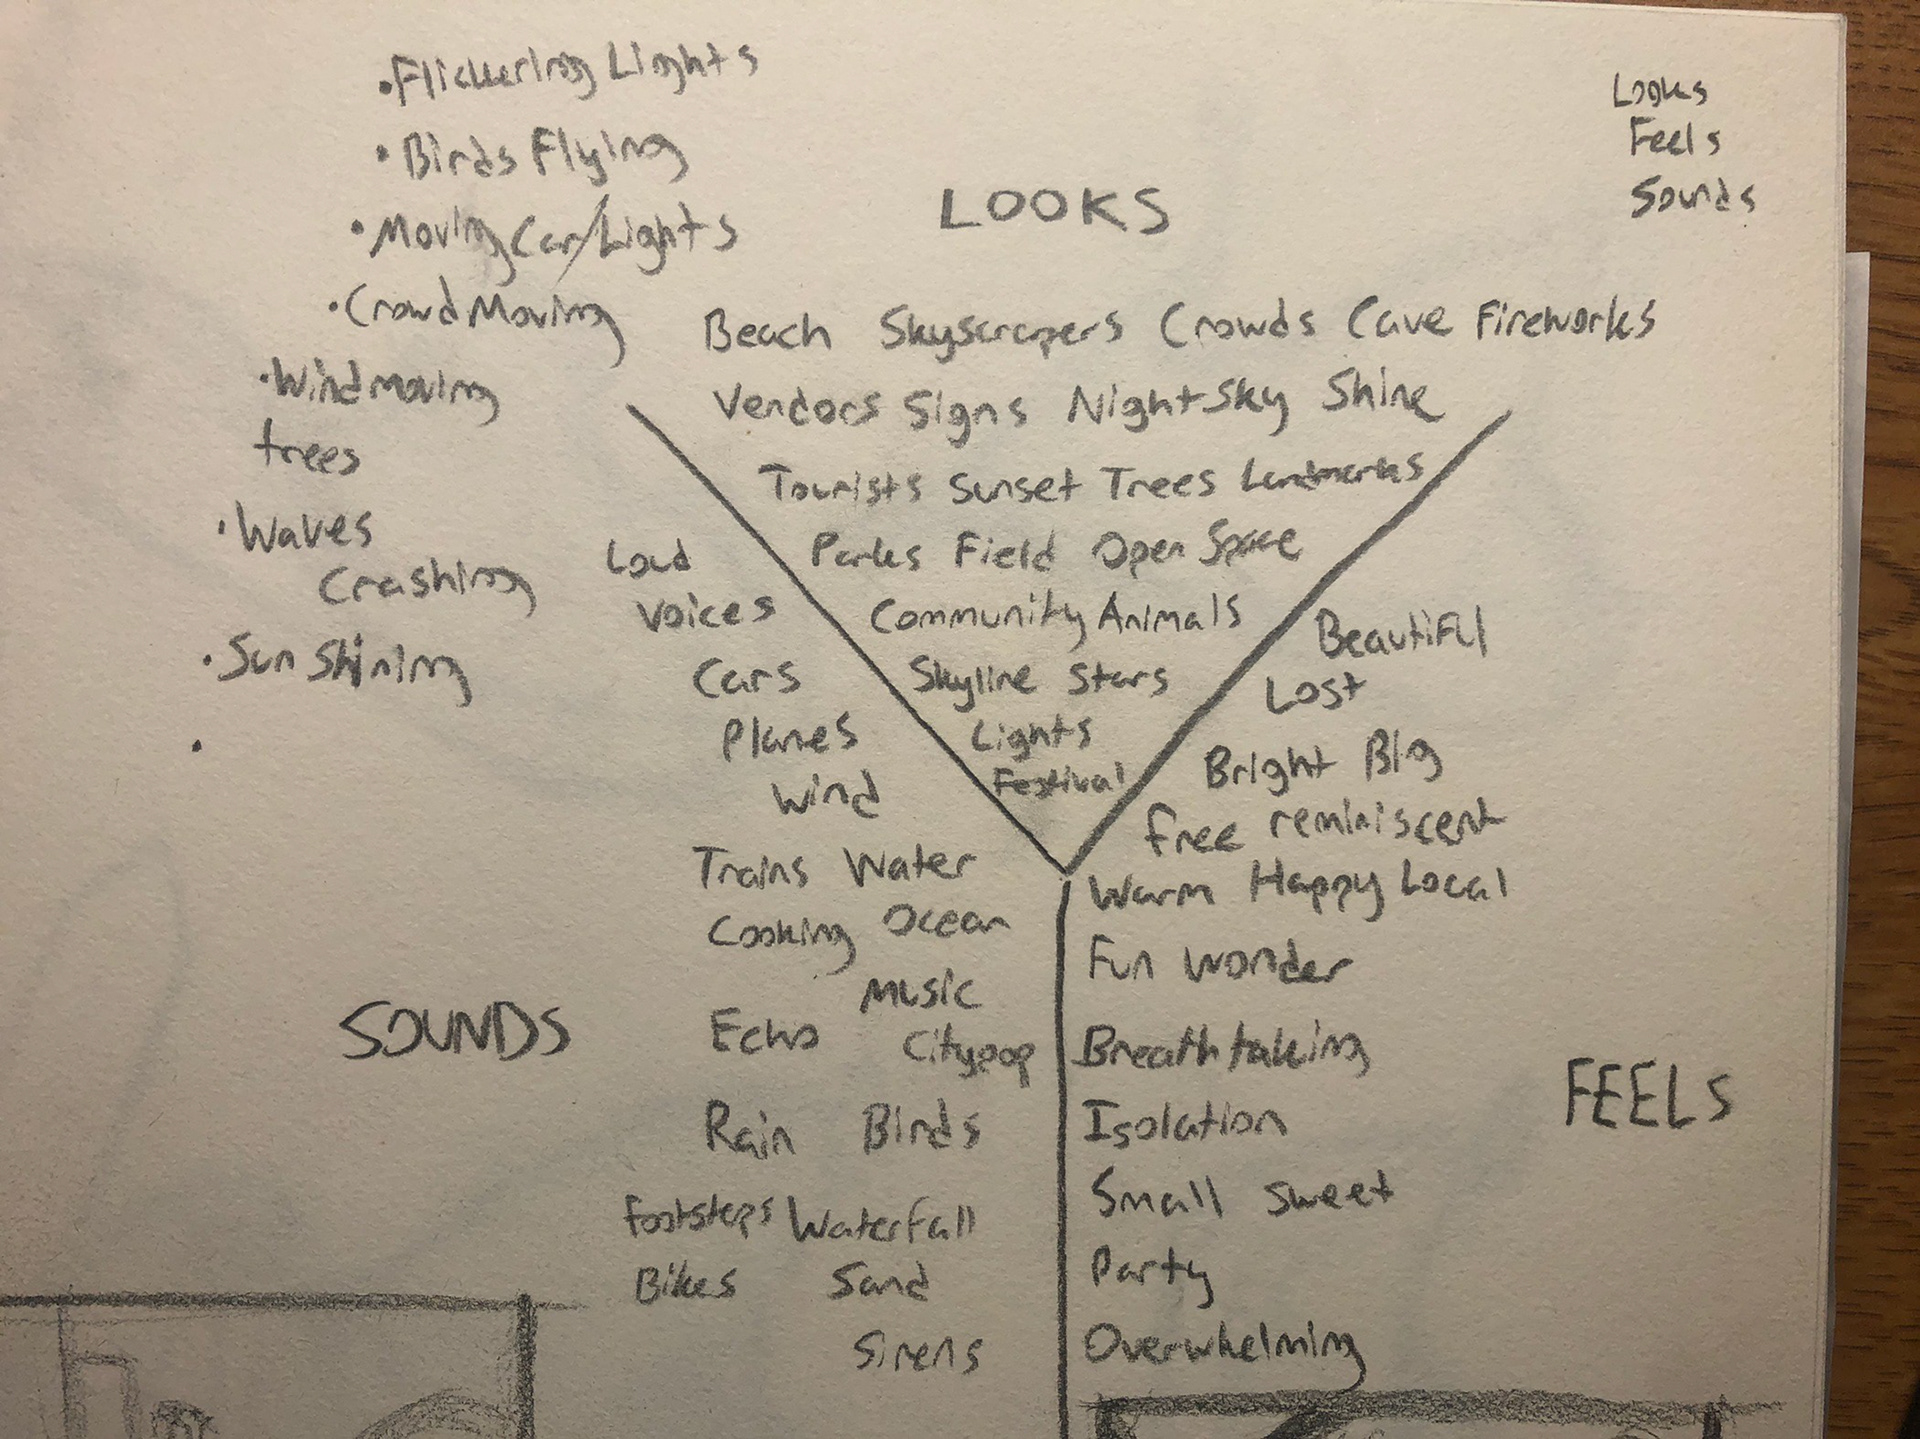 •Flickering Lights
•Birds Flying
•Moving Car/Lights
•Crowd Moving
•Wind moving
trees
•Waves
Crashing
•Sun Shining
•
Looks
Feels
Sounds
LOOKS
Beach Skyscrapers Crowds Cave Fireworks
Vendors Signs Night Sky Shine
Tourists Sunset Trees Landmarks
Parks Field Open Space
Community Animals
Skyline Stars
Lights
Festival
Loud
Voices
Cars
Planes
Wind
Trains Water
Cooking Ocean
Music
Echo Citypop
Rain Birds
Footsteps Waterfall
Bikes Sand
Sirens
SOUNDS
Beautiful
Lost
Bright Big
Free reminiscent
Warm Happy Local
Fun Wonder
Breathtaking
Isolation
Small Sweet
Party
Overwhelming
FEELS